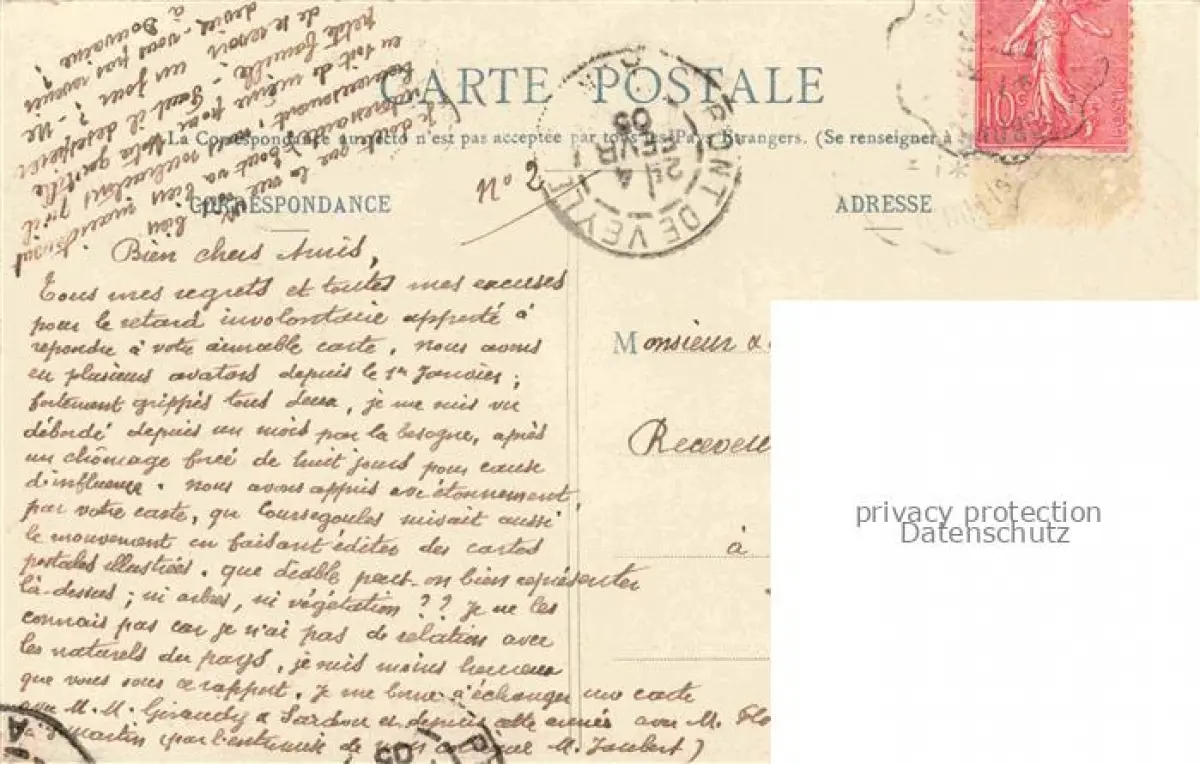 CARTE POSTALE
La Correspondance au recto n'est pas acceptée par tous les Pays Etrangers. (Se renseigner à
CORRESPONDANCE
ADRESSE
No 2
10c
PONT DE VEYLE
4
FEVR
05
Bien chers Amis,
Tous mes regrets et toutes mes excuses
pour le retard involontaire apporté à
répondre à votre aimable carte. Nous avons
eu plusieurs avatars depuis le 1er Janvier ;
fortement grippés tous deux, je me suis vu
débordé depuis un mois par la besogne, après
un chômage forcé de huit jours pour cause
d'influenza. Nous avons appris avec étonnement,
par votre carte, que Coursegoules suivait aussi
le mouvement en faisant éditer des cartes
postales illustrées. que diable peut-on bien représenter
là-dessus ; ni arbres, ni végétation ?? Je ne les
connais pas car je n'ai pas de relation avec
les naturels du pays, je suis moins heureux
que vous sous ce rapport. Je me borne à échanger une carte
avec M. M. Giraudy & Sardou et depuis cette année avec M.
Martin (par l'entremise de mon collègue M. Joubert)
la vue
Tout va bien
pour
petite famille. Faut-il désespérer
de se revoir un jour ? - Ne
devez-vous pas revenir
à Douvaine ?
Monsieur &
Receveur
à
privacy protection
Datenschutz
05